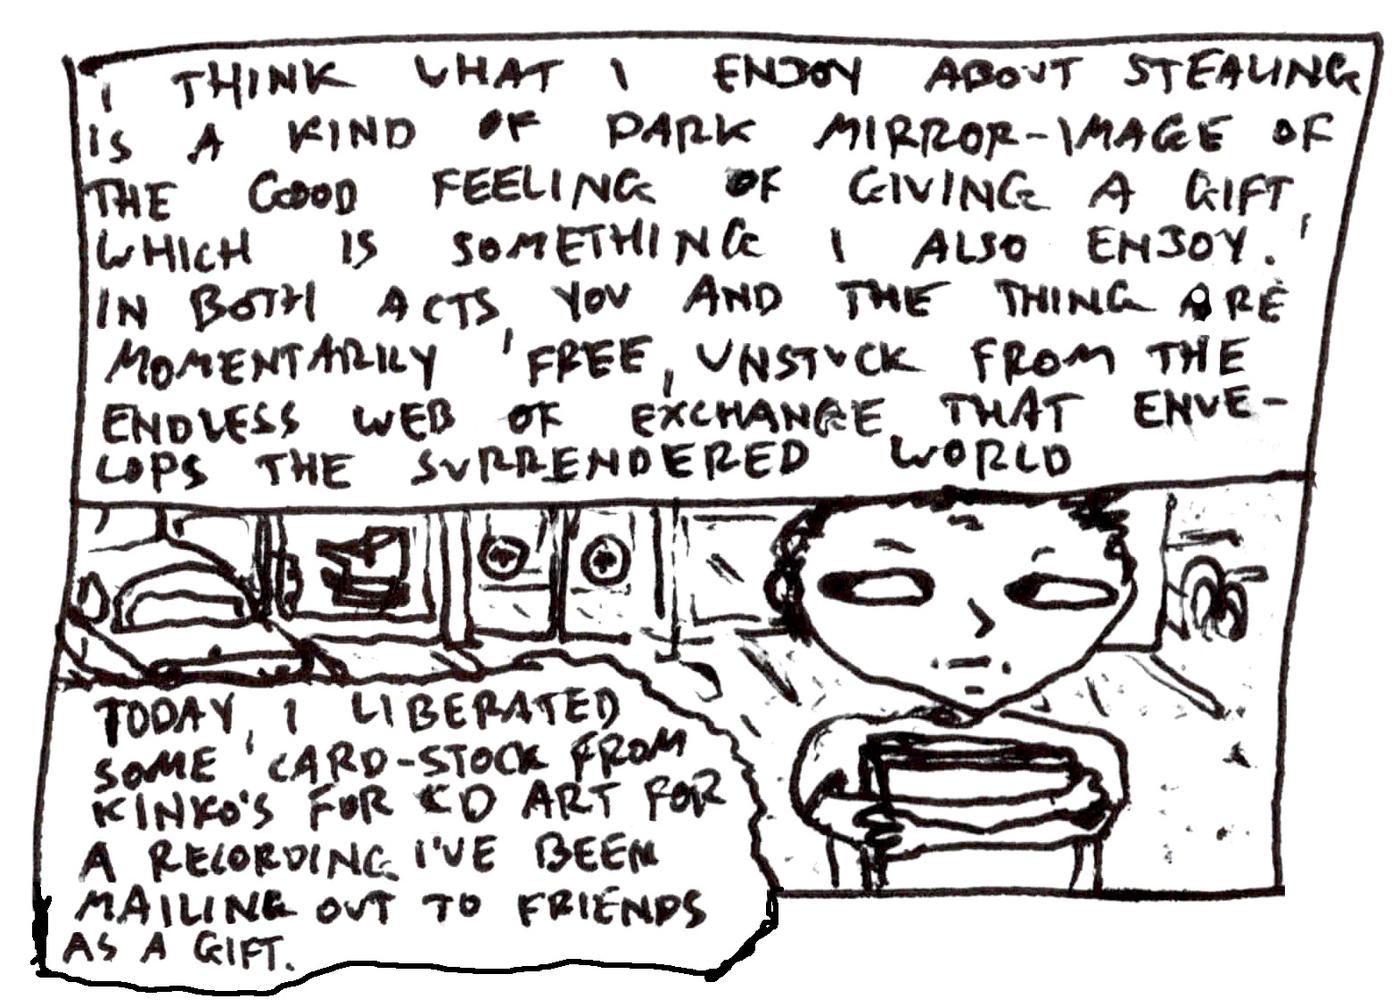 I THINK WHAT I ENJOY ABOUT STEALING
IS A KIND OF DARK MIRROR-IMAGE OF
THE GOOD FEELING OF GIVING A GIFT,
WHICH IS SOMETHING I ALSO ENJOY.
IN BOTH ACTS, YOU AND THE THING ARE
MOMENTARILY FREE, UNSTUCK FROM THE
ENDLESS WEB OF EXCHANGE THAT ENVE-
LOPS THE SURRENDERED WORLD
TODAY, I LIBERATED
SOME CARD-STOCK FROM
KINKO'S FOR CD ART FOR
A RECORDING I'VE BEEN
MAILING OUT TO FRIENDS
AS A GIFT.